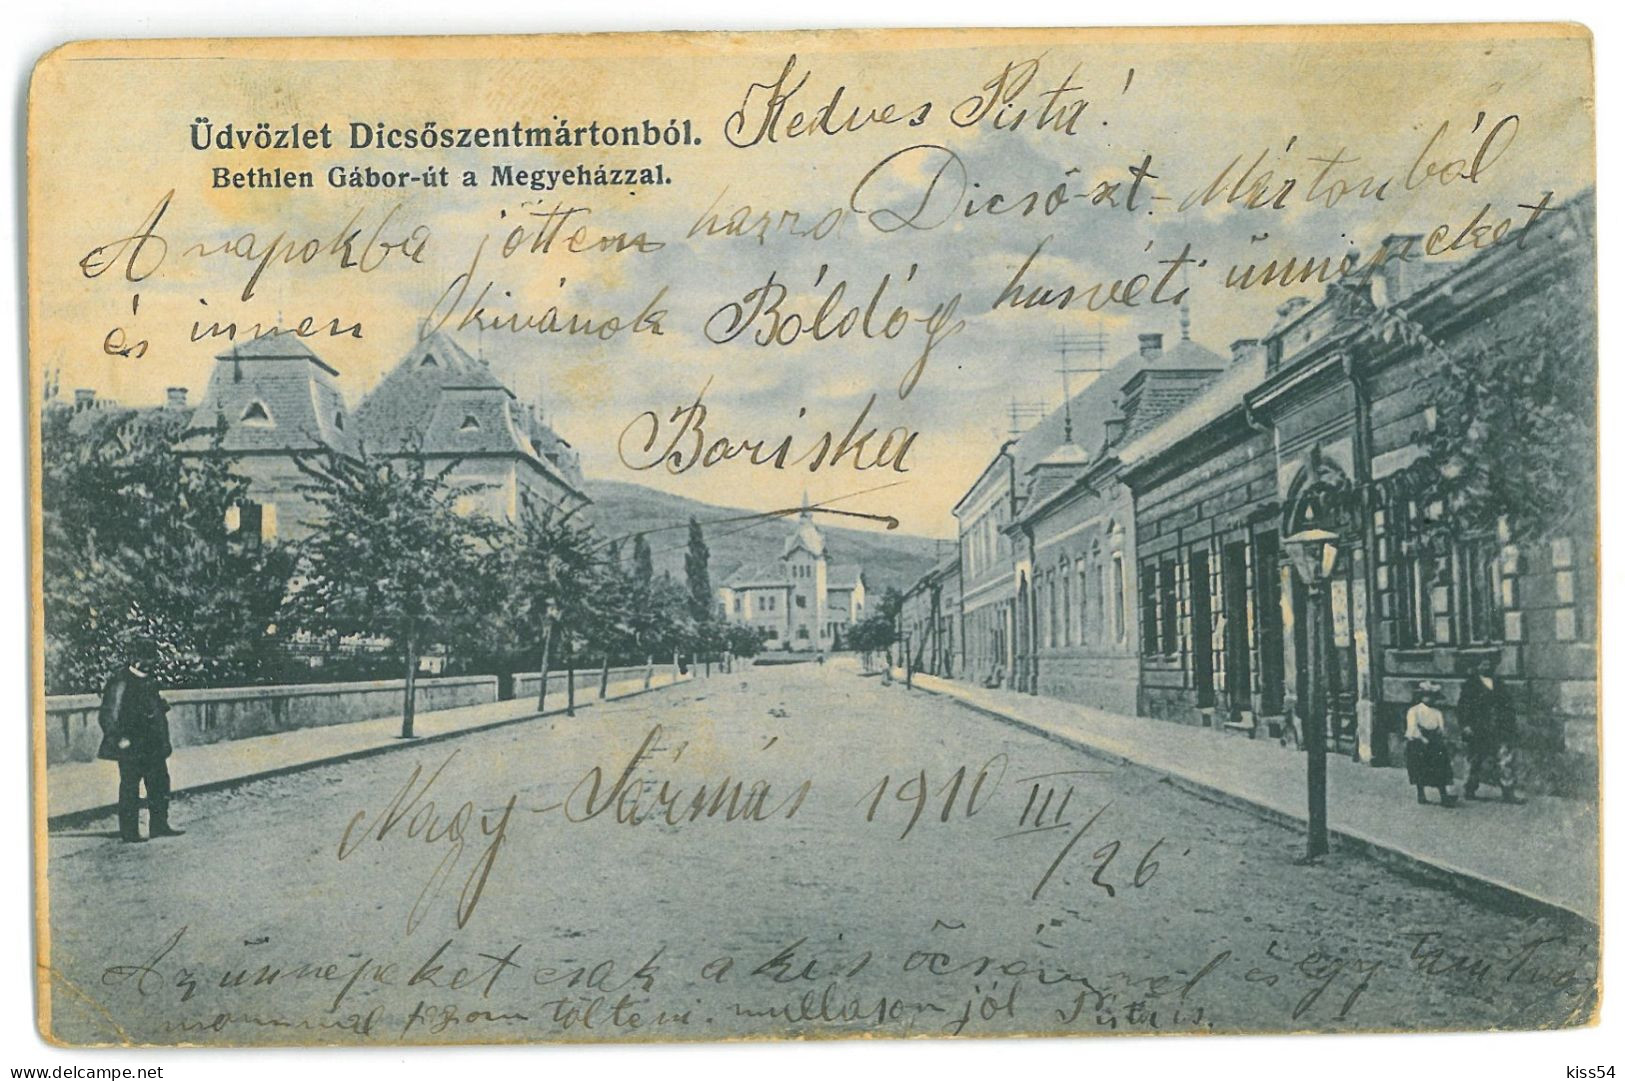 Üdvözlet Dicsőszentmártonból.
Bethlen Gábor-út a Megyeházzal.
Kedves Pista!
A napokba jöttem hazza Dicső-szt.-Mártonból
és innen kivánok Bóldóg husvéti ünnepeket.
Bariska
Nagy-Sármás 1910 III/26
Az ünnepeket csak a kis öcsémmel és egy tanitvá
nommal fogom tölteni. mullason jól Pista is.
delcampe.net
kiss54